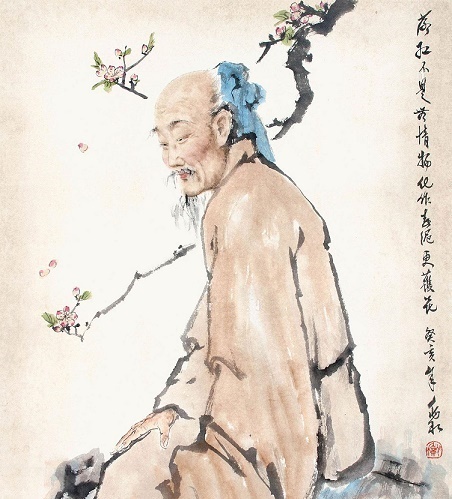 落红不是無情物化作春泥更護花癸亥年